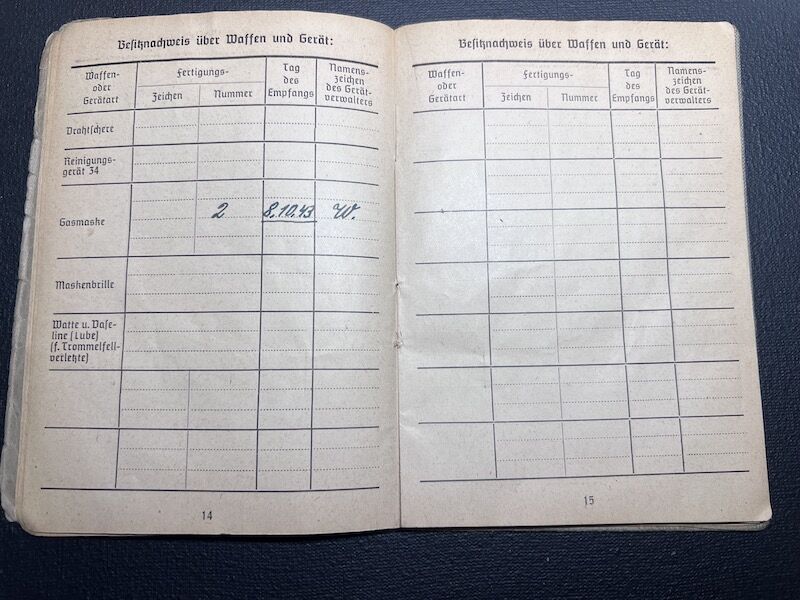 Besitznachweis über Waffen und Gerät:
Waffen-
oder
Gerätart
Fertigungs-
Zeichen
Nummer
Tag
des
Empfangs
Namens-
zeichen
des Gerät-
verwalters
Drahtschere
Reinigungs-
gerät 34
Gasmaske
2
8.10.43
W.
Maskenbrille
Watte u. Vase-
line (Tube)
(f. Trommelfell-
verletzte)
14
Besitznachweis über Waffen und Gerät:
Waffen-
oder
Gerätart
Fertigungs-
Zeichen
Nummer
Tag
des
Empfangs
Namens-
zeichen
des Gerät-
verwalters
15